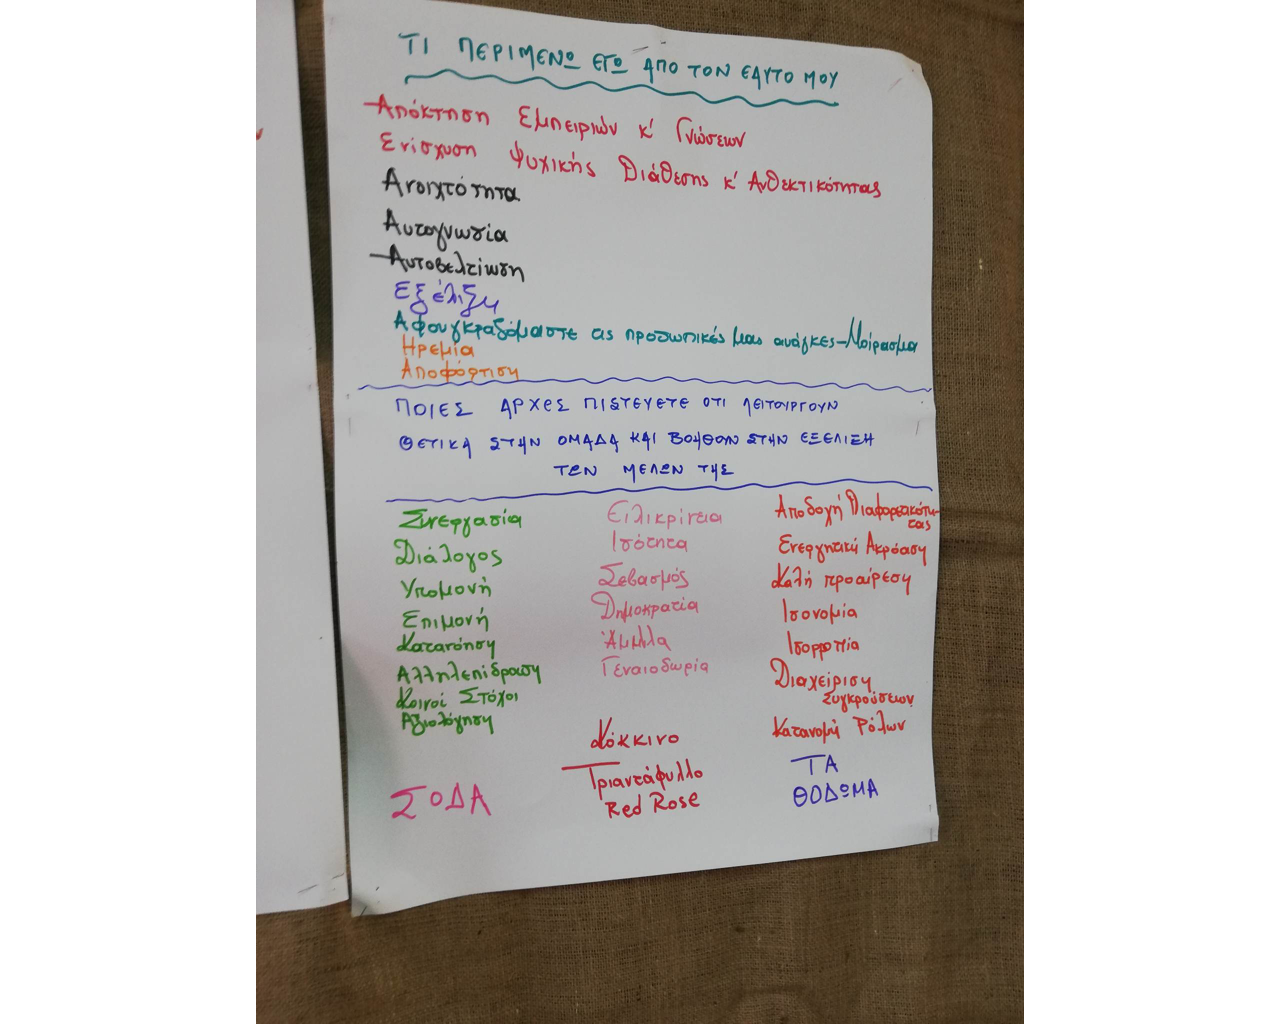 ΤΙ ΠΕΡΙΜΕΝΩ ΕΓΩ ΑΠΟ ΤΟΝ ΕΑΥΤΟ ΜΟΥ
Απόκτηση Εμπειριών κ' Γνώσεων
Ενίσχυση Ψυχικής Διάθεσης κ' Ανθεκτικότητας
Ανοιχτότητα
Αυτογνωσία
Αυτοβελτίωση
Εξέλιξη
Αφουγκραζόμαστε τις προσωπικές μας ανάγκες-Μοίρασμα
Ηρεμία
Αποφόρτιση
ΠΟΙΕΣ ΑΡΧΕΣ ΠΙΣΤΕΥΕΤΕ ΟΤΙ ΛΕΙΤΟΥΡΓΟΥΝ
ΘΕΤΙΚΑ ΣΤΗΝ ΟΜΑΔΑ ΚΑΙ ΒΟΗΘΟΥΝ ΣΤΗΝ ΕΞΕΛΙΞΗ
ΤΩΝ ΜΕΛΩΝ ΤΗΣ
Συνεργασία
Διάλογος
Υπομονή
Επιμονή
Κατανόηση
Αλληλεπίδραση
Κοινοί Στόχοι
Αξιολόγηση
ΣΟΔΑ
Ειλικρίνεια
Ισότητα
Σεβασμός
Δημοκρατία
Άμιλλα
Γεναιοδωρία
Κόκκινο
Τριαντάφυλλο
Red Rose
Αποδοχή Διαφορετικότη-
τας
Ενεργητική Ακρόαση
Καλή προαίρεση
Ισονομία
Ισορροπία
Διαχείριση
Συγκρούσεων
Κατανομή Ρόλων
ΤΑ
ΘΟΔΩΜΑ